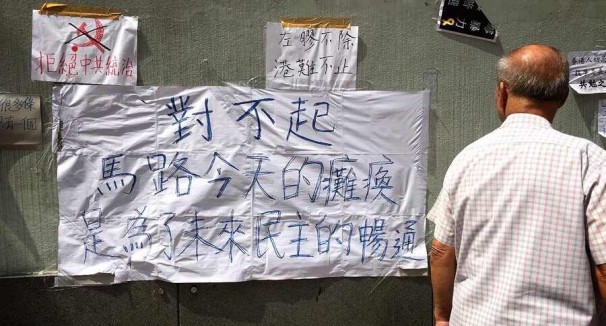 拒絕中共統治
左膠不除
港難不止
對不起
馬路今天的癱瘓
是為了未來民主的暢通